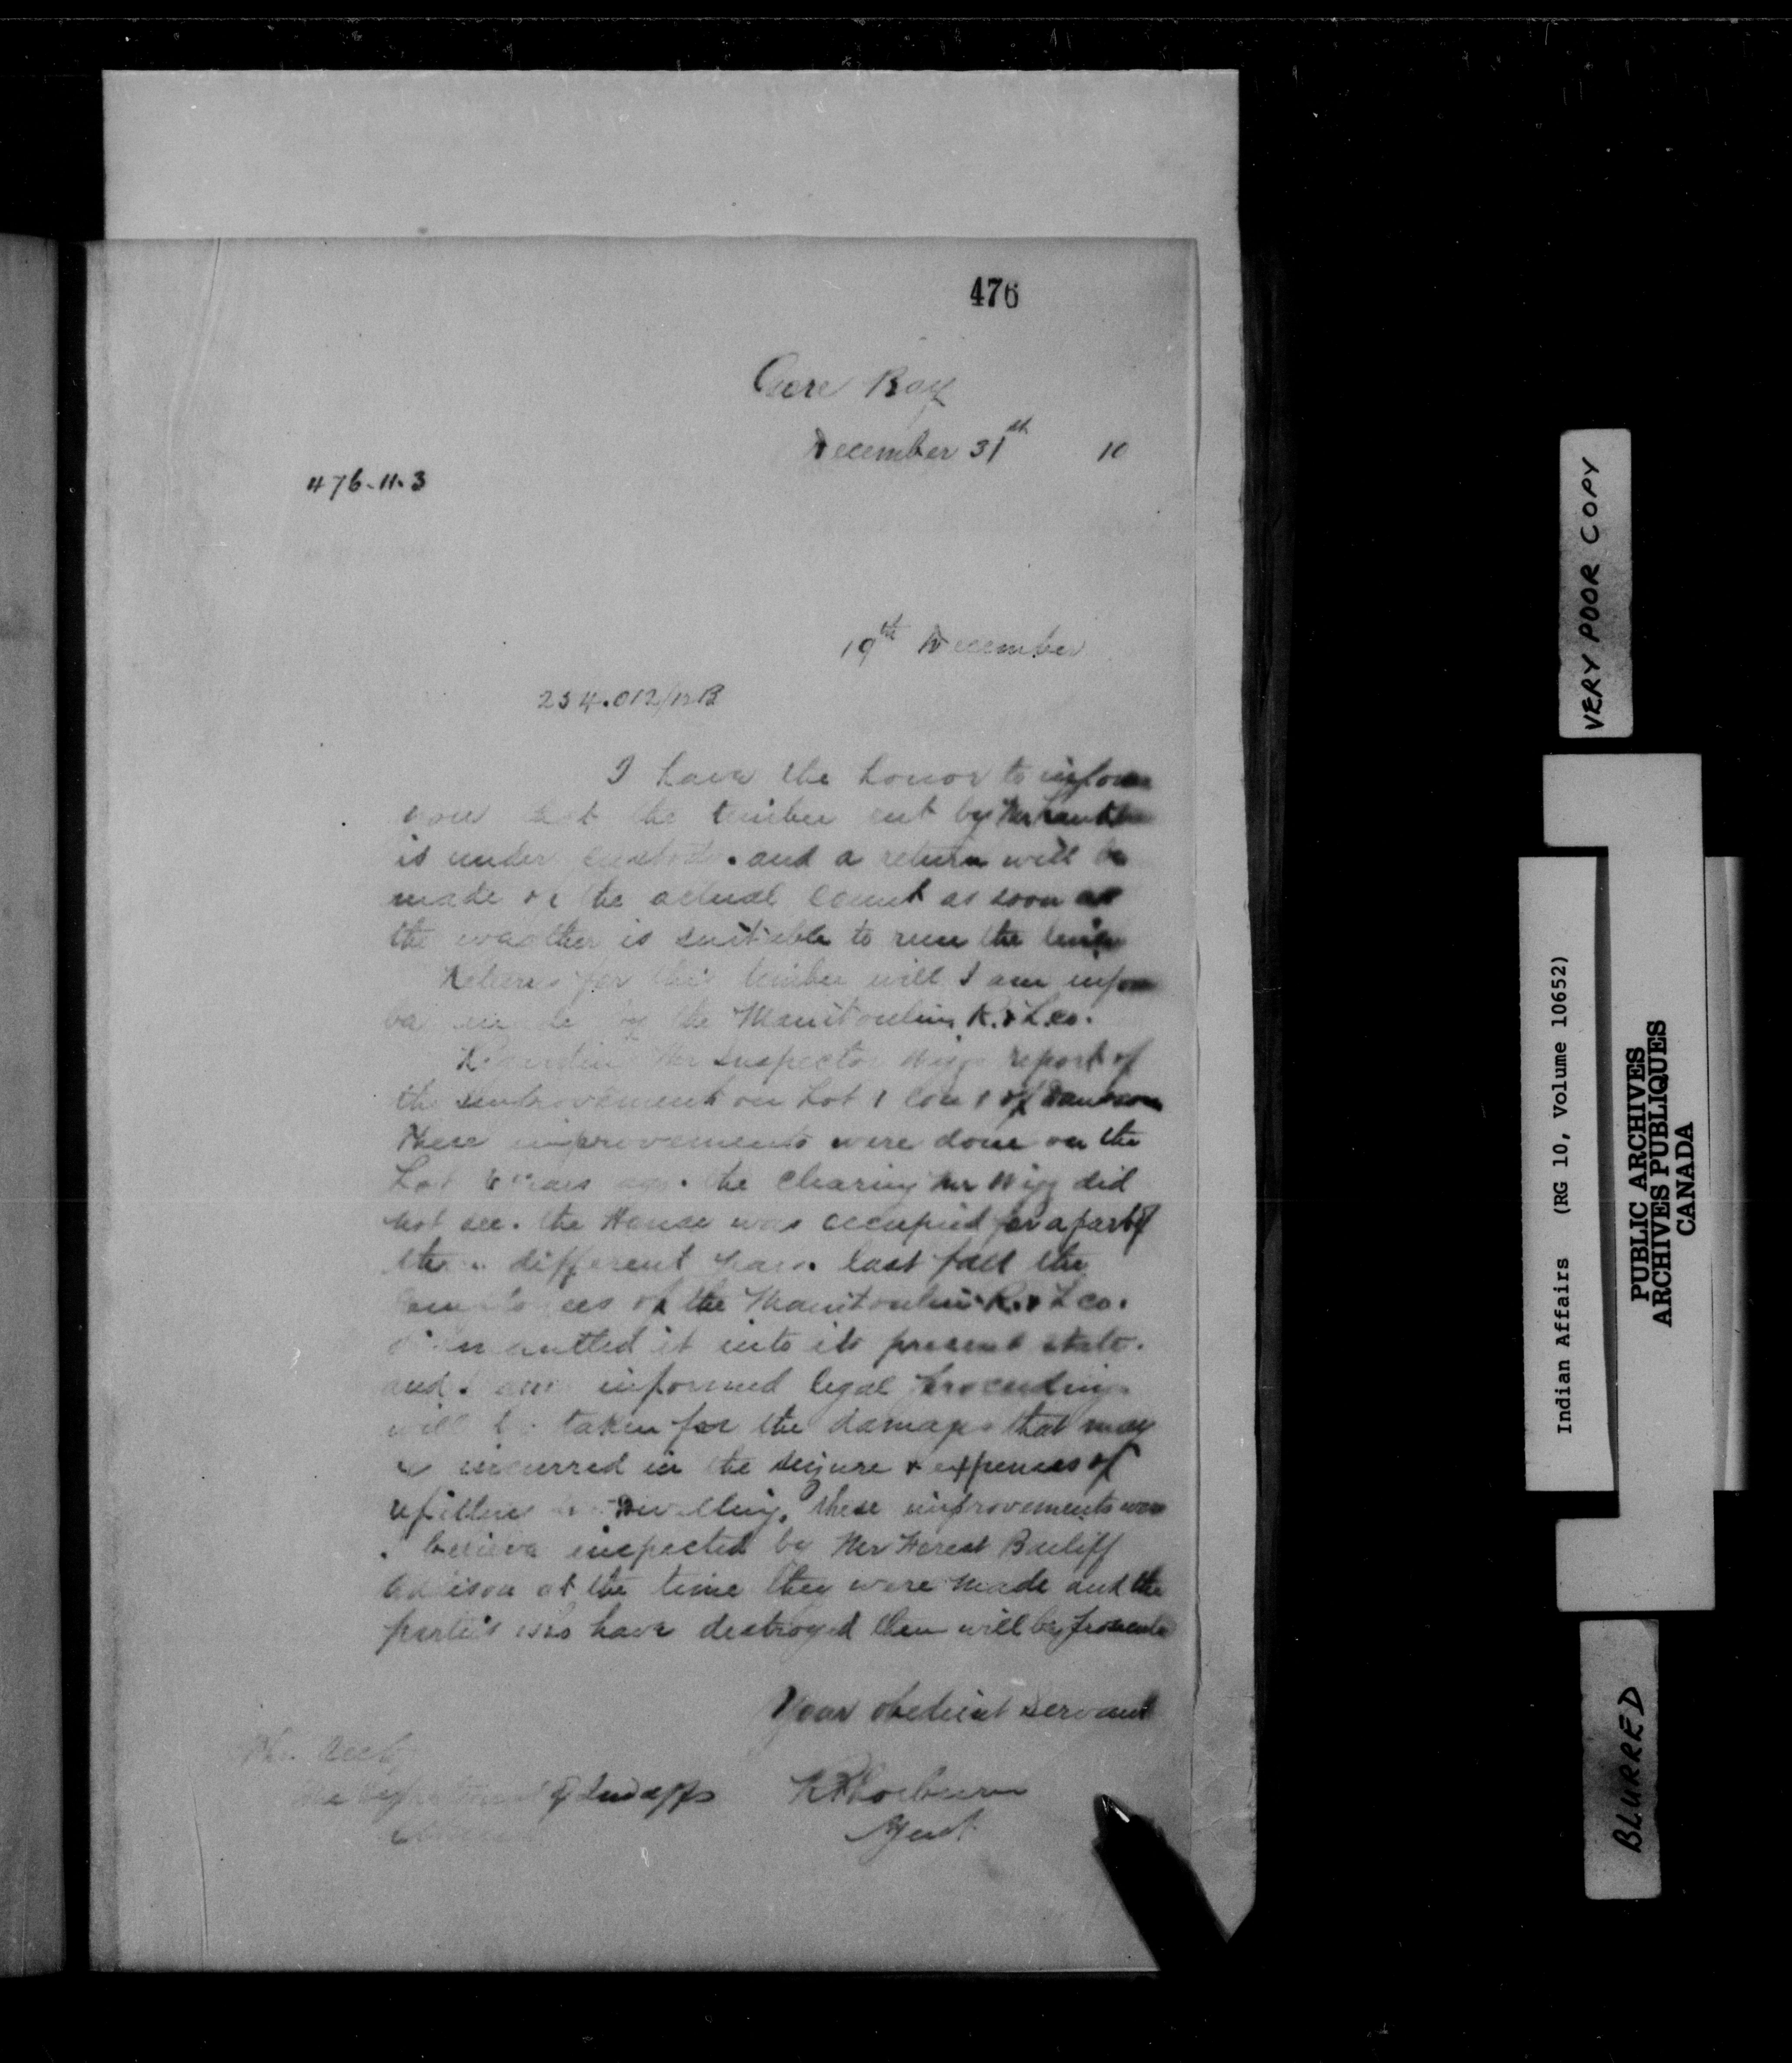 476
Gore Bay
December 31th 10
476-11-3
19th December
254.012/12B
I have the honor to inform
you that the timber cut by Mr
is under and a return will be
made of the actual count as soon as
the weather is suitable to run the
Returns for this timber will I am
be made by the Manitoulin R. & L. co.
Regarding Mr Inspector report of
the improvements on Lot 1 Con 1 of
these improvements were done on the
Lot years ago. the clearing Mr did
not see. the House was occupied for a part of
the different years. last fall the
employees of the Manitoulin R. & L co.
dismantled it into its present state.
and I am informed legal proceedings
will be taken for the damages that may
be incurred in the & expenses of
Dwelling. these improvements were
I believe inspected by Mr Forest Bailiff
at the time they were made and the
parties who have destroyed them will be
Your obedient Servant
The Secty
of Ind Affs
Agent
VERY POOR COPY
Indian Affairs (RG 10, Volume 10652)
PUBLIC ARCHIVES
ARCHIVES PUBLIQUES
CANADA
BLURRED